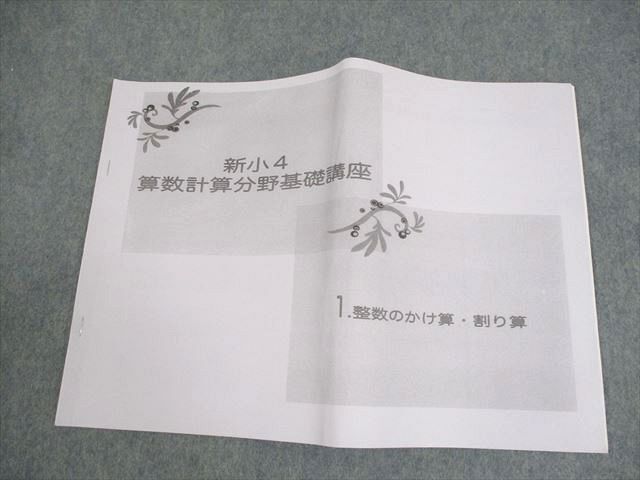 新小4
算数計算分野基礎講座
1.整数のかけ算・割り算